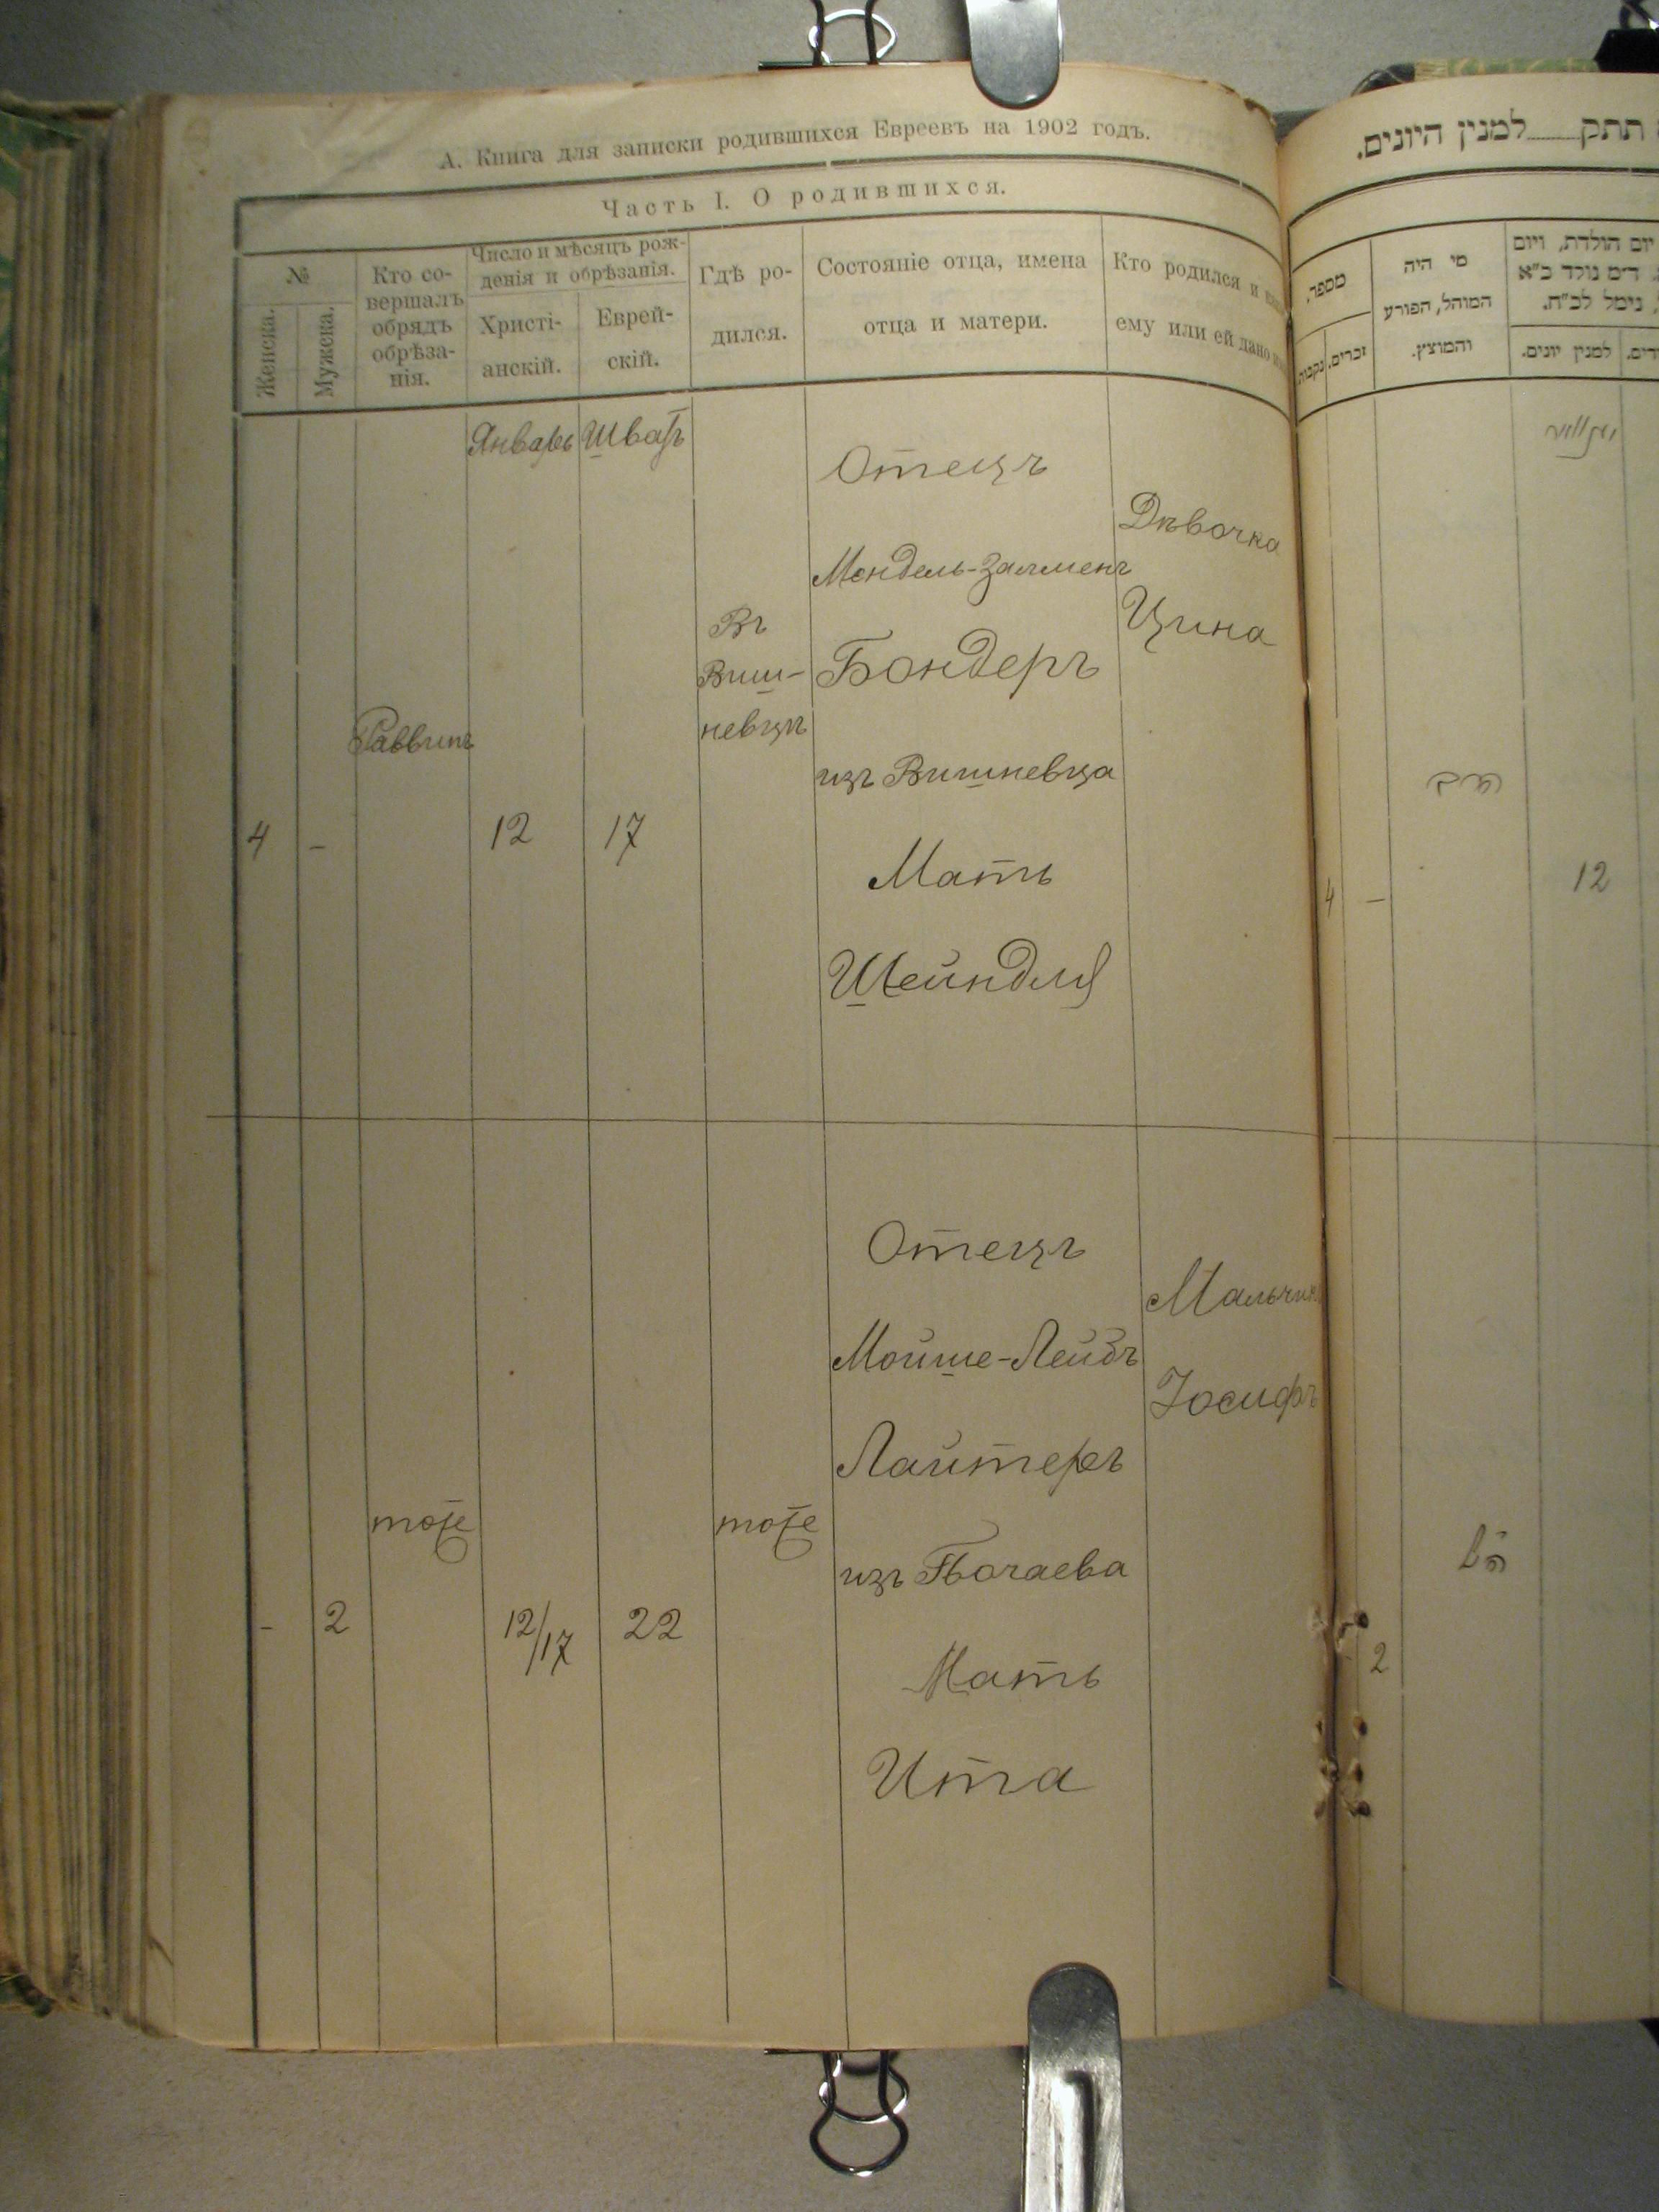 А. Книга для записки родившихся Евреевъ на 1902 годъ.
Часть I. О родившихся.
№
Женска.
Мужска.
Кто со-
вершалъ
обрядъ
обрѣза-
нія.
Число и мѣсяцъ рож-
денія и обрѣзанія.
Христі-
анскій.
Еврей-
скій.
Гдѣ ро-
дился.
Состояніе отца, имена
отца и матери.
Кто родился и
ему или ей дано
Январь
Шватъ
4
-
Раввинъ
12
17
Въ
Виш-
невцѣ
Отецъ
Мендель-Залменъ
Бондеръ
изъ Вишневца
Мать
Шейндля
Дѣвочка
Цина
-
2
тоже
12/17
22
тоже
Отецъ
Мойше-Лейбъ
Лайтеръ
изъ Почаева
Мать
Ита
Мальчикъ
Іосифъ
תתק למנין היונים.
מספר.
זכרים.
נקבות.
מי היה
המוהל, הפורע
והמוצץ.
יום הולדת, ויום
ד״מ נולד כ״א
נימל לכ״ח.
למנין יונים.
4
-
הרב
12
2